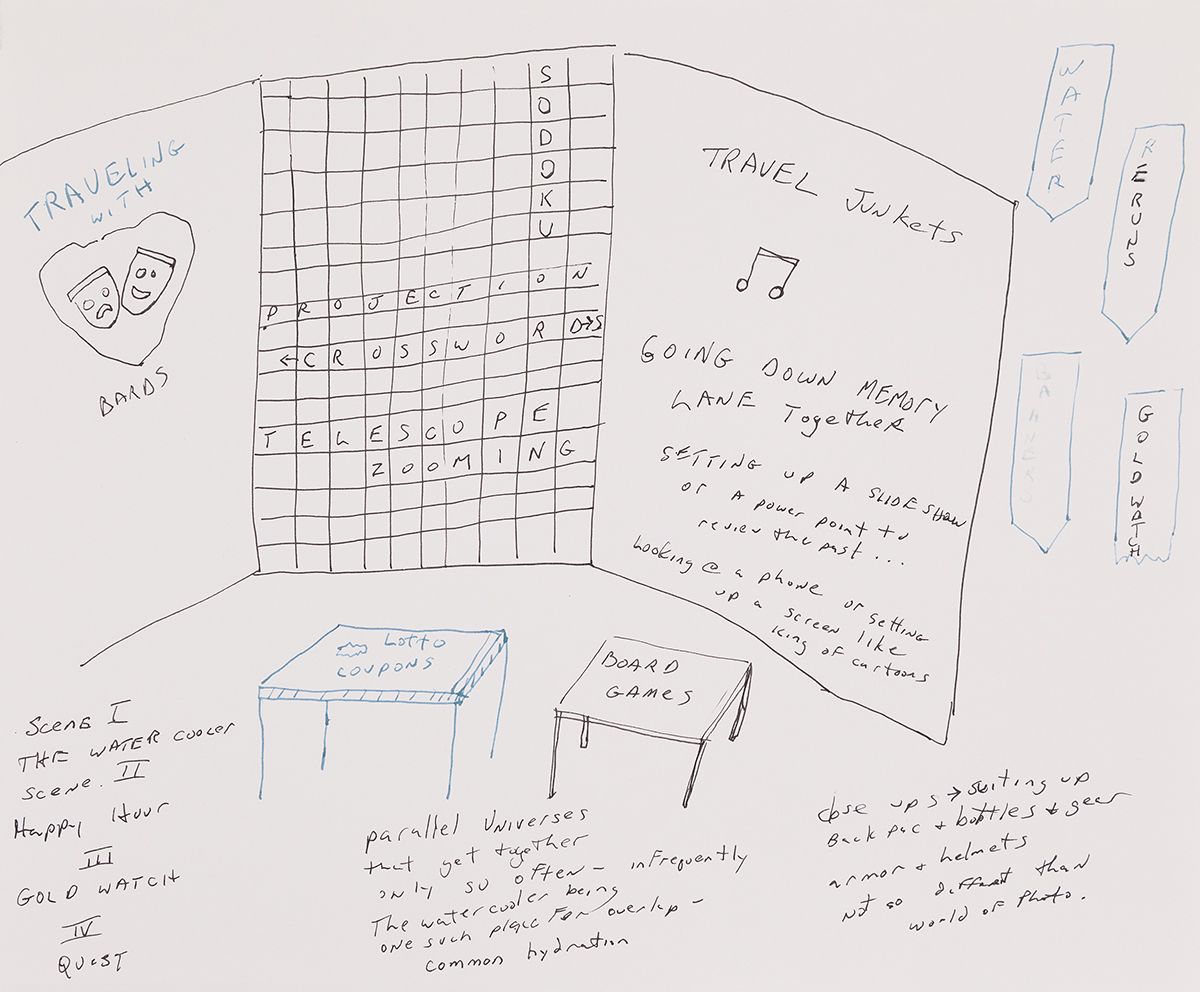 TRAVELING
WITH
BARDS
SODOKU
PROJECTION
←CROSSWORD→S
TELESCOPE
ZOOMING
TRAVEL JUNKets
GOING DOWN MEMORY
LANE TogetheR
SETTING UP A SLIDE SHOW
or A power point to
review the past...
Looking @ a phone or setting
up a screen like
King of cartoons
WATER
RERUNS
BANNERS
GOLD WATCH
Lotto
COUPONS
BOARD
GAMES
Scene I
THE WATER COOLER
Scene. II
Happy Hour
III
GOLD WATCH
IV
QUEST
parallel Universes
that get together
only so often - infrequently
The watercooler being
one such place For overlap -
common hydration
close ups → suiting up
Back pac + bottles + gear
armor + helmets
Not so different than
world of Photo.